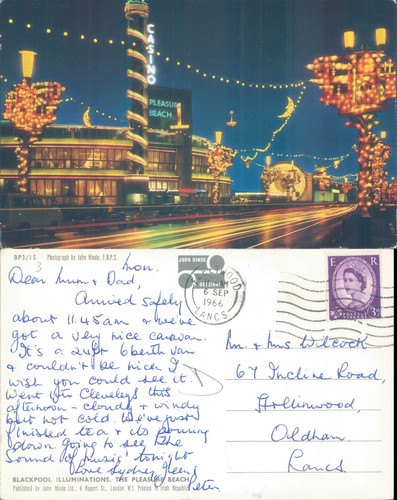 CASINO
PLEASURE
BEACH
BP3/15 Photograph by John Hinde, F.R.P.S.
JOHN HINDE
ORIGINAL
6 SEP
1966
LANCS
E R
3D
Mon.
Dear Mum & Dad,
Arrived safely
about 11.45am & we've
got a very nice caravan.
It's a 24ft 6 berth van
& couldn't be nicer. I
wish you could see it.
Went to Cleveleys this
afternoon - cloudy & windy
but not cold. We've just
finished tea & its pouring
down going to see 'The
Sound of Music' tonight
Love Sydney, Jean &
Peter
Mr. & Mrs Wilcock
67 Incline Road,
Hollinwood,
Oldham.
Lancs.
BLACKPOOL ILLUMINATIONS. THE PLEASURE BEACH
Published by John Hinde Ltd., 6 Rupert St., London W.1. Printed in Irish Republic